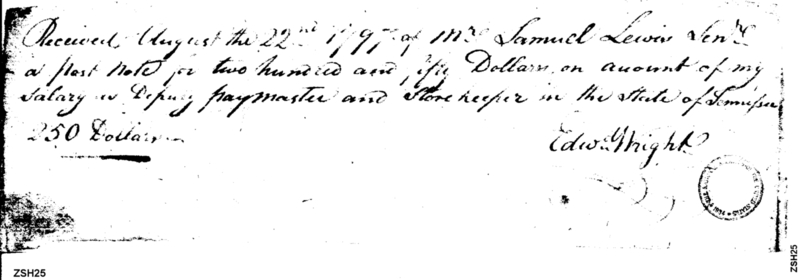 Received August the 22nd 1797 of Mr Samuel Lewis Senr
a post note for two hundred and fifty Dollars on account of my
Salary as Deputy paymaster and Storekeeper in the State of Tennessee
250 Dollars
Edwd Wright
ZSH25
ZSH25